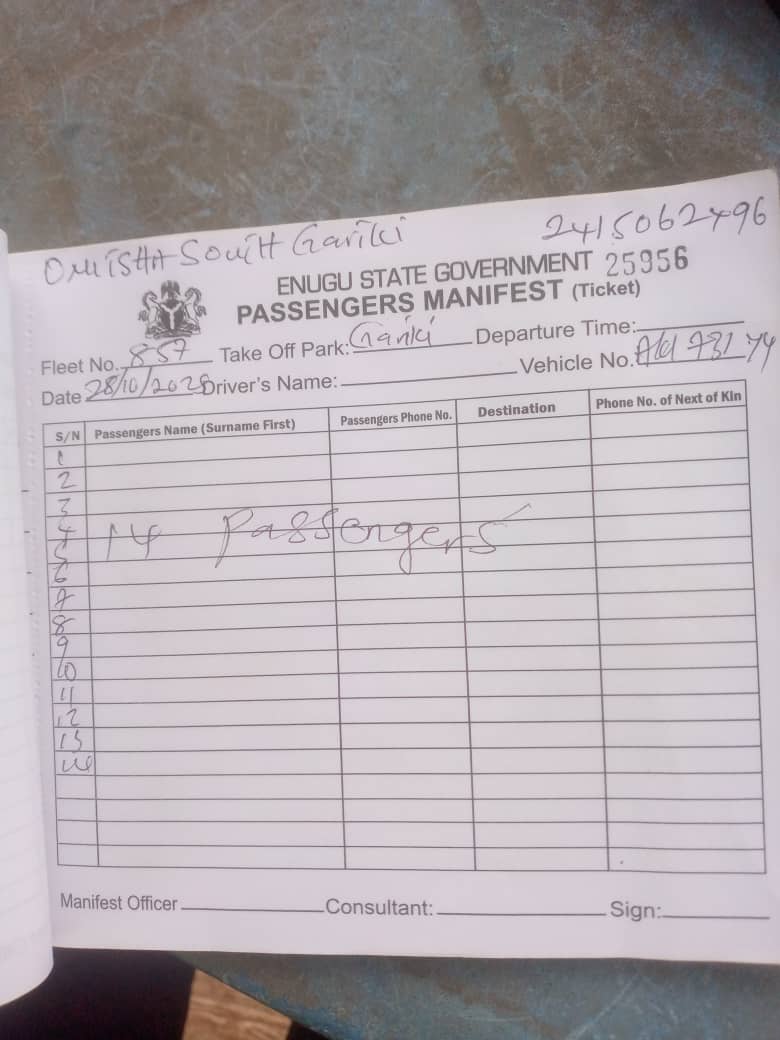 ONITSHA SOUTH Gariki 2415062496
ENUGU STATE GOVERNMENT 25956
PASSENGERS MANIFEST (Ticket)
Fleet No. 857 Take Off Park: Gariki Departure Time:
Date 28/10/2025 Driver's Name: Vehicle No. 731 74
S/N Passengers Name (Surname First) Passengers Phone No. Destination Phone No. of Next of Kin
1
2
3
4 14 Passengers
5
6
7
8
9
10
11
12
13
14
Manifest Officer Consultant: Sign: